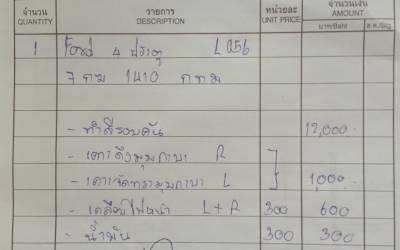 จำนวน รายการ หน่วยละ จำนวนเงิน
QUANTITY DESCRIPTION UNIT PRICE AMOUNT
บาท/Baht ส.ต./Stg
1 Ford 4 ประตู L056
7 กฆ 1410 กทม
- ทำสีรอบคัน 12,000
- เคาะดึงมุมกาบา R
- เคาะจัดทรงมุมกาบา L 1000
- เคลือบไฟหน้า L+R 300 600
- น้ำมัน 300 300